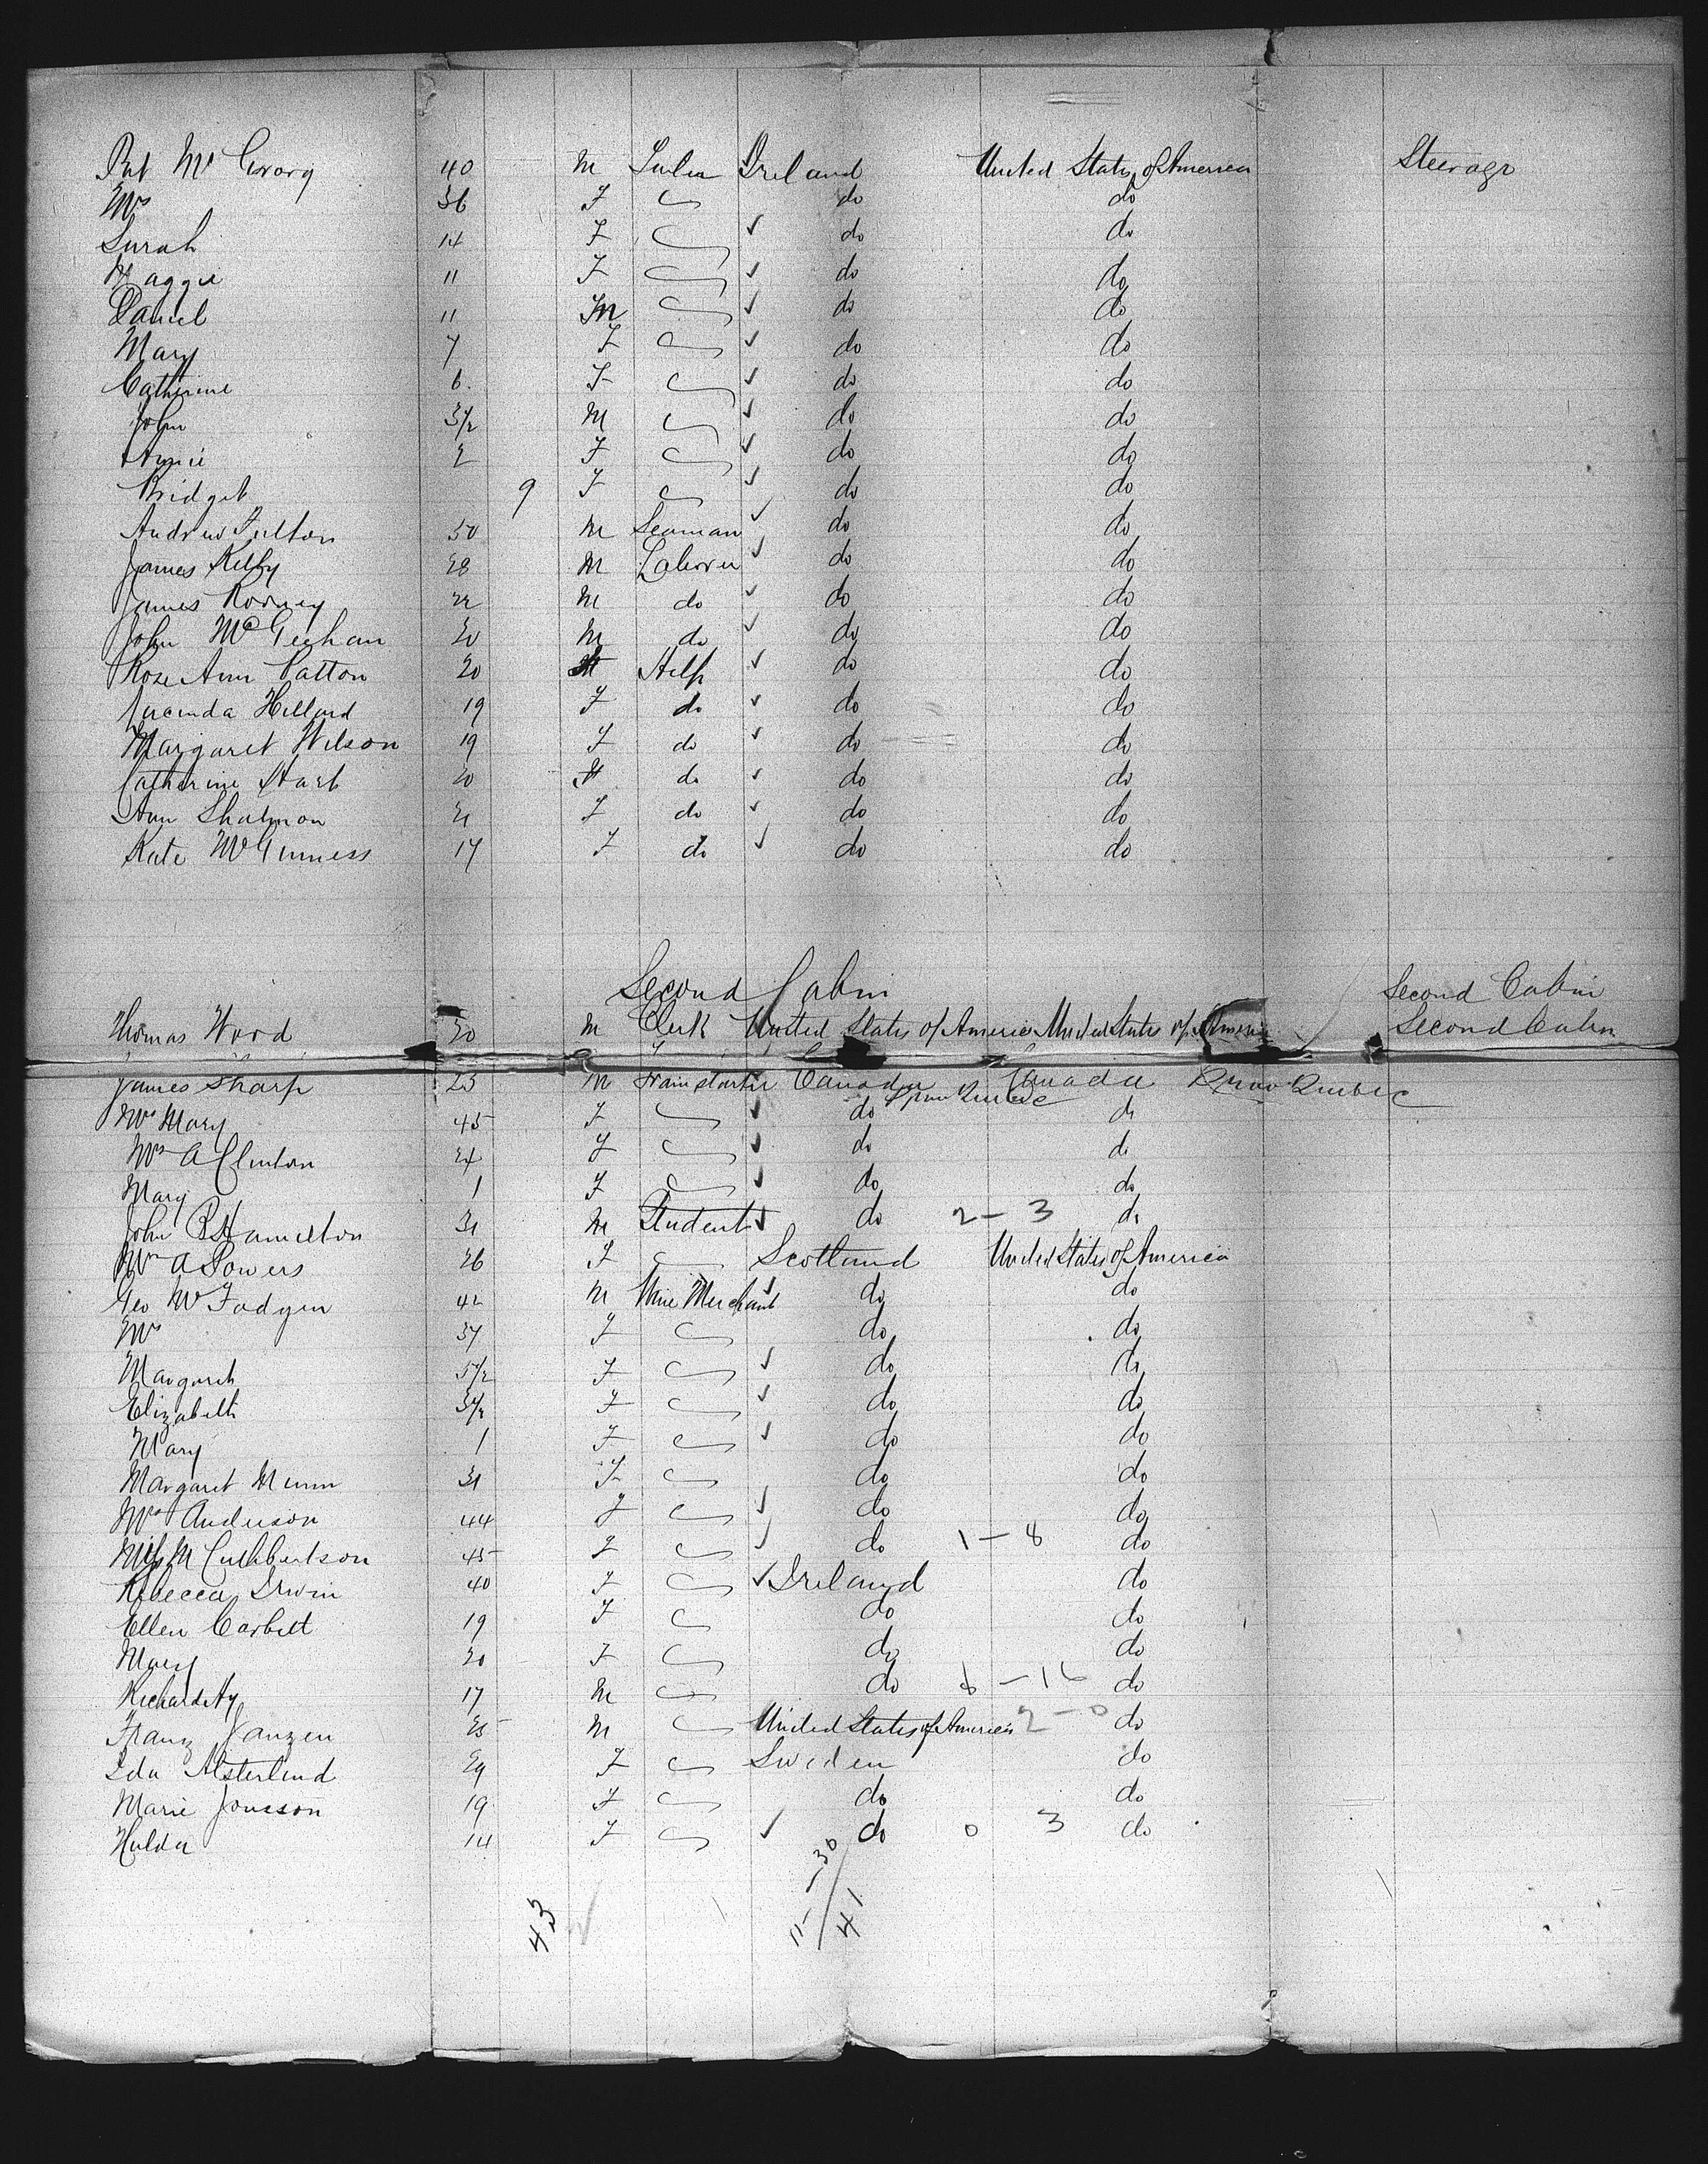 Pat McGrory 40 M Ireland United States of America Steerage
Mrs 36 F do do
Sarah 14 F do do
Maggie 11 F do do
Daniel 11 M do do
Mary 7 F do do
Catherine 6 F do do
John 3 1/2 M do do
Annie 2 F do do
Bridget 9 F do do
Andrew Fulton 50 M Seaman do do
James Kelly 28 M Laborer do do
James Rodney 22 M do do do
John McGeehan 20 M do do do
Rose Ann Patton 20 Help do do
Lucinda 19 F do do do
Margaret Wilson 19 F do do do
Catherine 20 do do do
Ann 21 F do do do
Kate McGinness 17 F do do do
Second Cabin Second Cabin
Thomas Wood 30 M Clerk United States of America United States of America Second Cabin
James Sharp 23 M Canada Canada
Prov Quebec Prov Quebec
Mrs Mary 45 F do do
Mrs A Clinton 24 F do do
Mary 1 F do do
John B Hamilton 31 M Student do 2 - 3 do
Mrs A Powers 26 F Scotland United States of America
Geo McFadyen 42 M Wine Merchant do do
Mrs 37 F do do
Margaret 5 1/2 F do do
Elizabeth 3 1/2 F do do
Mary 1 F do do
Margaret Munn 31 F do do
Mrs Anderson 44 F do do
Miss M Cuthbertson 45 F do 1 - 8 do
Rebecca Irwin 40 F Ireland do
Ellen Corbett 19 F do do
Mary 20 F do do
Richard Hy 17 M do - 16 do
Franz Janzen 25 M United States of America 2 - 0 do
Ida Alsterlund 29 F Sweden do
Marie Jonsson 19 F do do
Hulda 14 F do 0 3 do
43 11 - 30 / 41